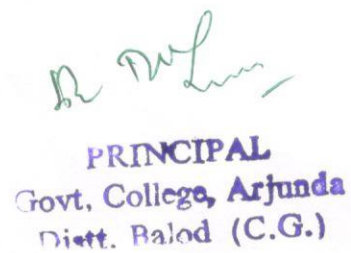 PRINCIPAL
Govt, College, Arjunda
Distt. Balod (C.G.)